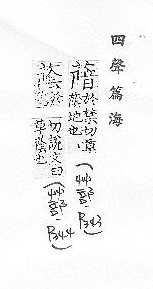 四聲篇海
䕃於禁切草
蔭地也（艸部．
P343）
切說文曰
草蔭也（艸部．
P344）